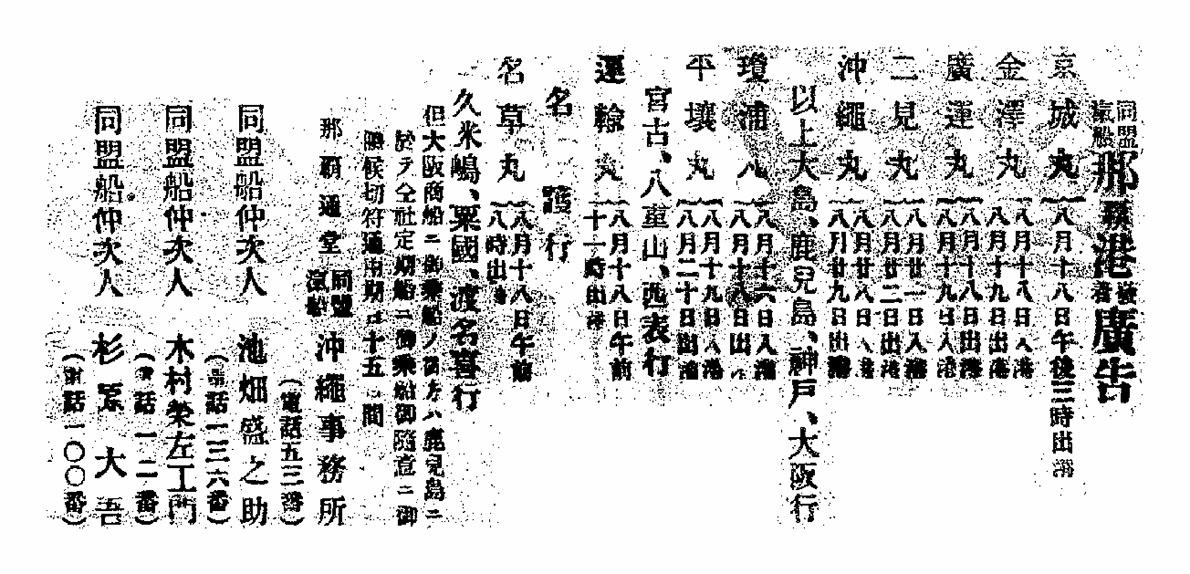 同盟汽船那覇港發着廣告
京城丸 八月十八日午後三時出港
金澤丸 八月十八日入港 八月十九日出港
廣運丸 八月十八日出港 八月十九日入港
二見丸 八月廿一日入港 八月廿二日出港
沖繩丸 八月廿八日入港 八月廿九日出港
以上大島、鹿兒島、神戸、大阪行
瓊浦丸 八月十六日入港 八月十八日出
平壤丸 八月十九日入港 八月二十日出港
宮古、八重山、西表行
運輸丸 八月十八日午前十一時出港
名護行
名草丸 八月十八日午前八時出港
久米嶋、粟國、渡名喜行
但大阪商船ニ御乘船ノ方ハ鹿兒島ニ
於テ仝社定期船ニ御乘船御隨意ニ御
候切符通用期十五間
那覇通堂 同盟汽船 沖繩事務所
(電話五三番)
同盟船仲次人 池畑盛之助
(電話一三六番)
同盟船仲次人 木村榮左工門
(電話一二番)
同盟船仲次人 杉原大吾
(電話一〇〇番)